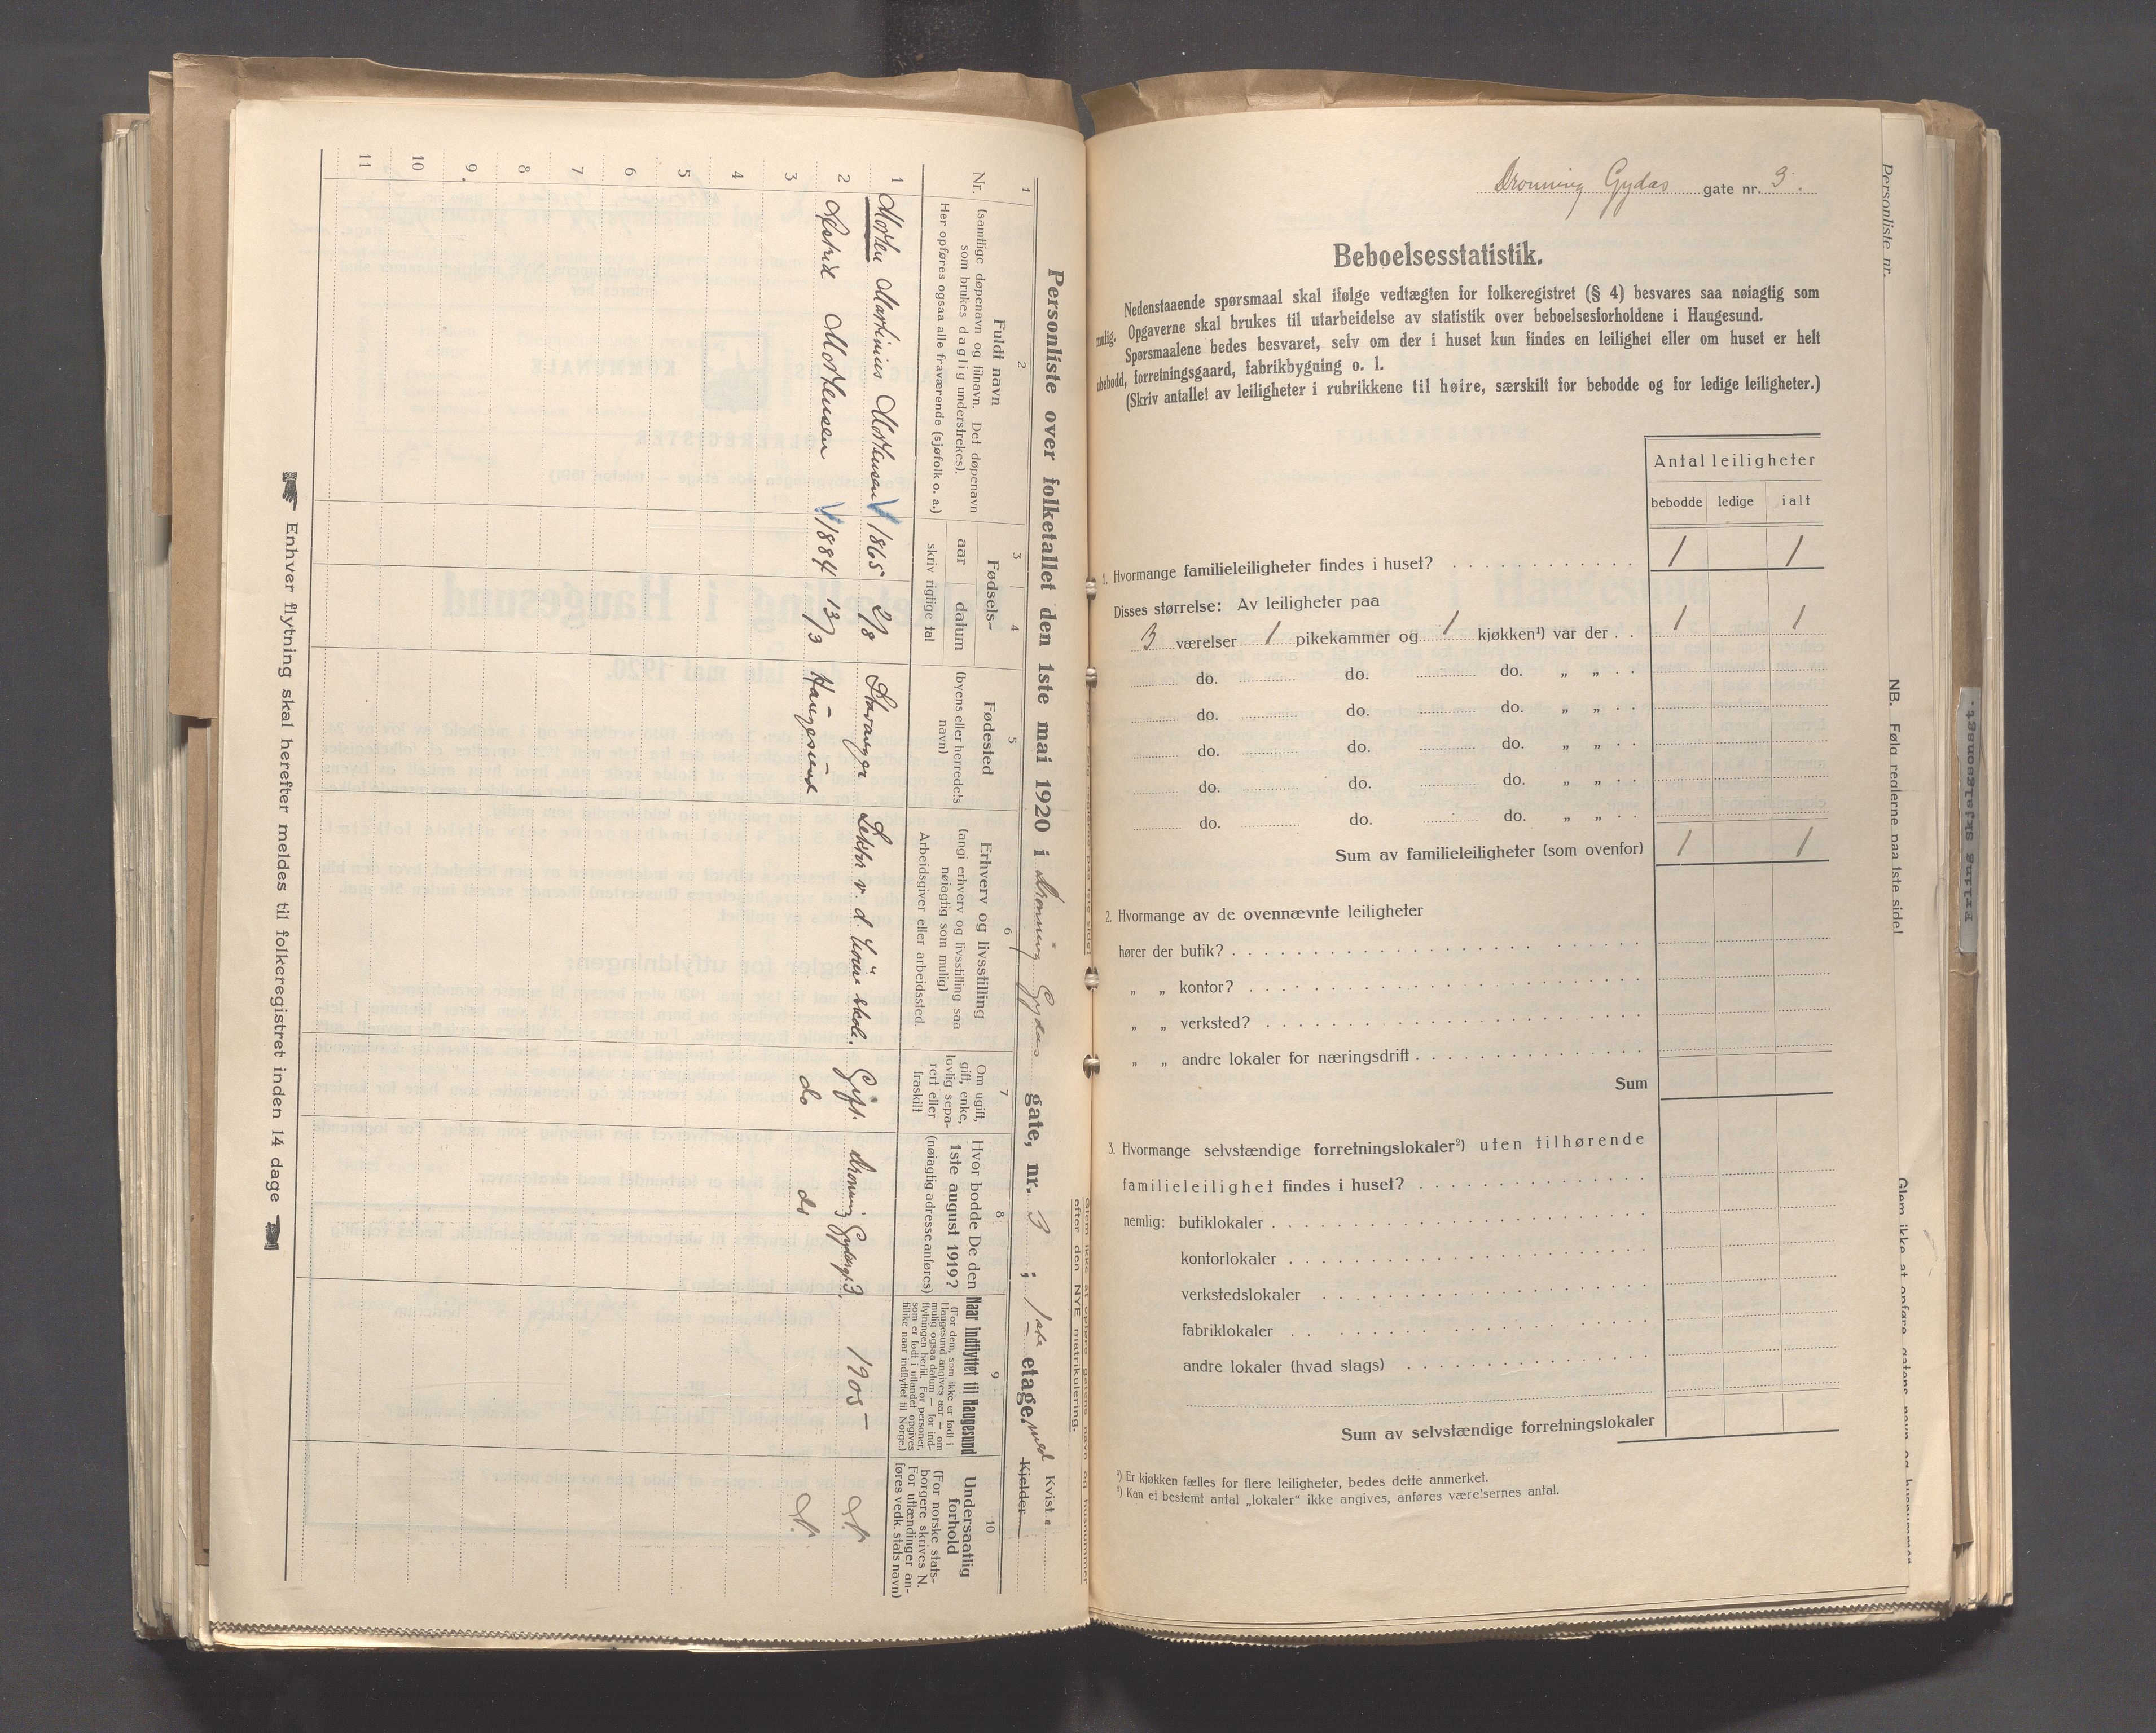 Personliste over folketallet den 1ste mai 1920 i Dronning Gydas gate, nr. 3 ; 1ste etage, med Kvist
Kjelder
1 2 3 4 5 6 7 8 9 10
Nr.
Fuldt navn
(samtlige døpenavn og tilnavn. Det døpenavn
som brukes daglig understrekes).
Her opføres ogsaa alle fraværende (sjøfolk o. a.)
Fødsels-
aar datum
skriv rigtige tal
Fødested
(byens eller herredets
navn)
Erhverv og livsstilling
(angi erhverv og livsstilling saa
nøiagtig som mulig)
Arbeidsgiver eller arbeidssted.
Om ugift,
gift, enke,
lovlig sepa-
rert eller
fraskilt
Hvor bodde De den
1ste august 1919?
(nøiagtig adresse anføres)
Naar indflyttet til Haugesund
(For dem, som ikke er født i
Haugesund angives aar — om
mulig ogsaa datum — for ind-
flytningen hertil. For personer,
som er født i utlandet opgives
tillike naar indflyttet til Norge.)
Undersaatlig
forhold
(For norske stats-
borgere skrives N.
For utlændinger an-
føres vedk. stats navn)
1 Morten Martinius Mortensen 1865 2/8 Stavanger Lektor v. d. höiere skole. Gift. Dronning Gydasgt. 3. 1905 – N.
2 Astrid Mortensen 1884 13/3 Haugesund do do N.
3
4
5
6
7
8
9.
10
11
Enhver flytning skal herefter meldes til folkeregistret inden 14 dage
Glem ikke at opføre gatens navn og husnummer
efter den NYE matrikulering.
Dronning Gydas gate nr. 3.
Beboelsesstatistik.
Nedenstaaende spørsmaal skal ifølge vedtægten for folkeregistret (§ 4) besvares saa nøiagtig som
mulig. Opgaverne skal brukes til utarbeidelse av statistik over beboelsesforholdene i Haugesund.
Spørsmaalene bedes besvaret, selv om der i huset kun findes en leilighet eller om huset er helt
ubebodd, forretningsgaard, fabrikbygning o. l.
(Skriv antallet av leiligheter i rubrikkene til høire, særskilt for bebodde og for ledige leiligheter.)
Antal leiligheter
bebodde ledige ialt
1. Hvormange familieleiligheter findes i huset? . . . . . . . . . . . . . 1 1
Disses størrelse: Av leiligheter paa
3 værelser 1 pikekammer og 1 kjøkken¹) var der . . 1 1
do. do. do. „ „ . .
do. do. do. „ „ . .
do. do. do. „ „ . .
do. do. do. „ „ . .
do. do. do. „ „ . .
Sum av familieleiligheter (som ovenfor) 1 1
2. Hvormange av de ovennævnte leiligheter
hører der butik? . . . . . . . . . . . . . . . . . . . . .
„ „ kontor? . . . . . . . . . . . . . . . . . . . . .
„ „ verksted? . . . . . . . . . . . . . . . . . . . .
„ „ andre lokaler for næringsdrift . . . . . . . . . . . .
Sum
3. Hvormange selvstændige forretningslokaler²) uten tilhørende
familieleilighet findes i huset? . . . . . . . . . . . .
nemlig: butiklokaler . . . . . . . . . . . . . . . . . . .
kontorlokaler . . . . . . . . . . . . . . . . . . .
verkstedslokaler . . . . . . . . . . . . . . . . .
fabriklokaler . . . . . . . . . . . . . . . . . . .
andre lokaler (hvad slags) . . . . . . . . . . . . .
Sum av selvstændige forretningslokaler
¹) Er kjøkken fælles for flere leiligheter, bedes dette anmerket.
²) Kan et bestemt antal „lokaler“ ikke angives, anføres værelsernes antal.
Personliste nr.
NB. Følg reglerne paa 1ste side!
Glem ikke at opføre gatens navn og husnummer
Erling Skjalgsonsgt.